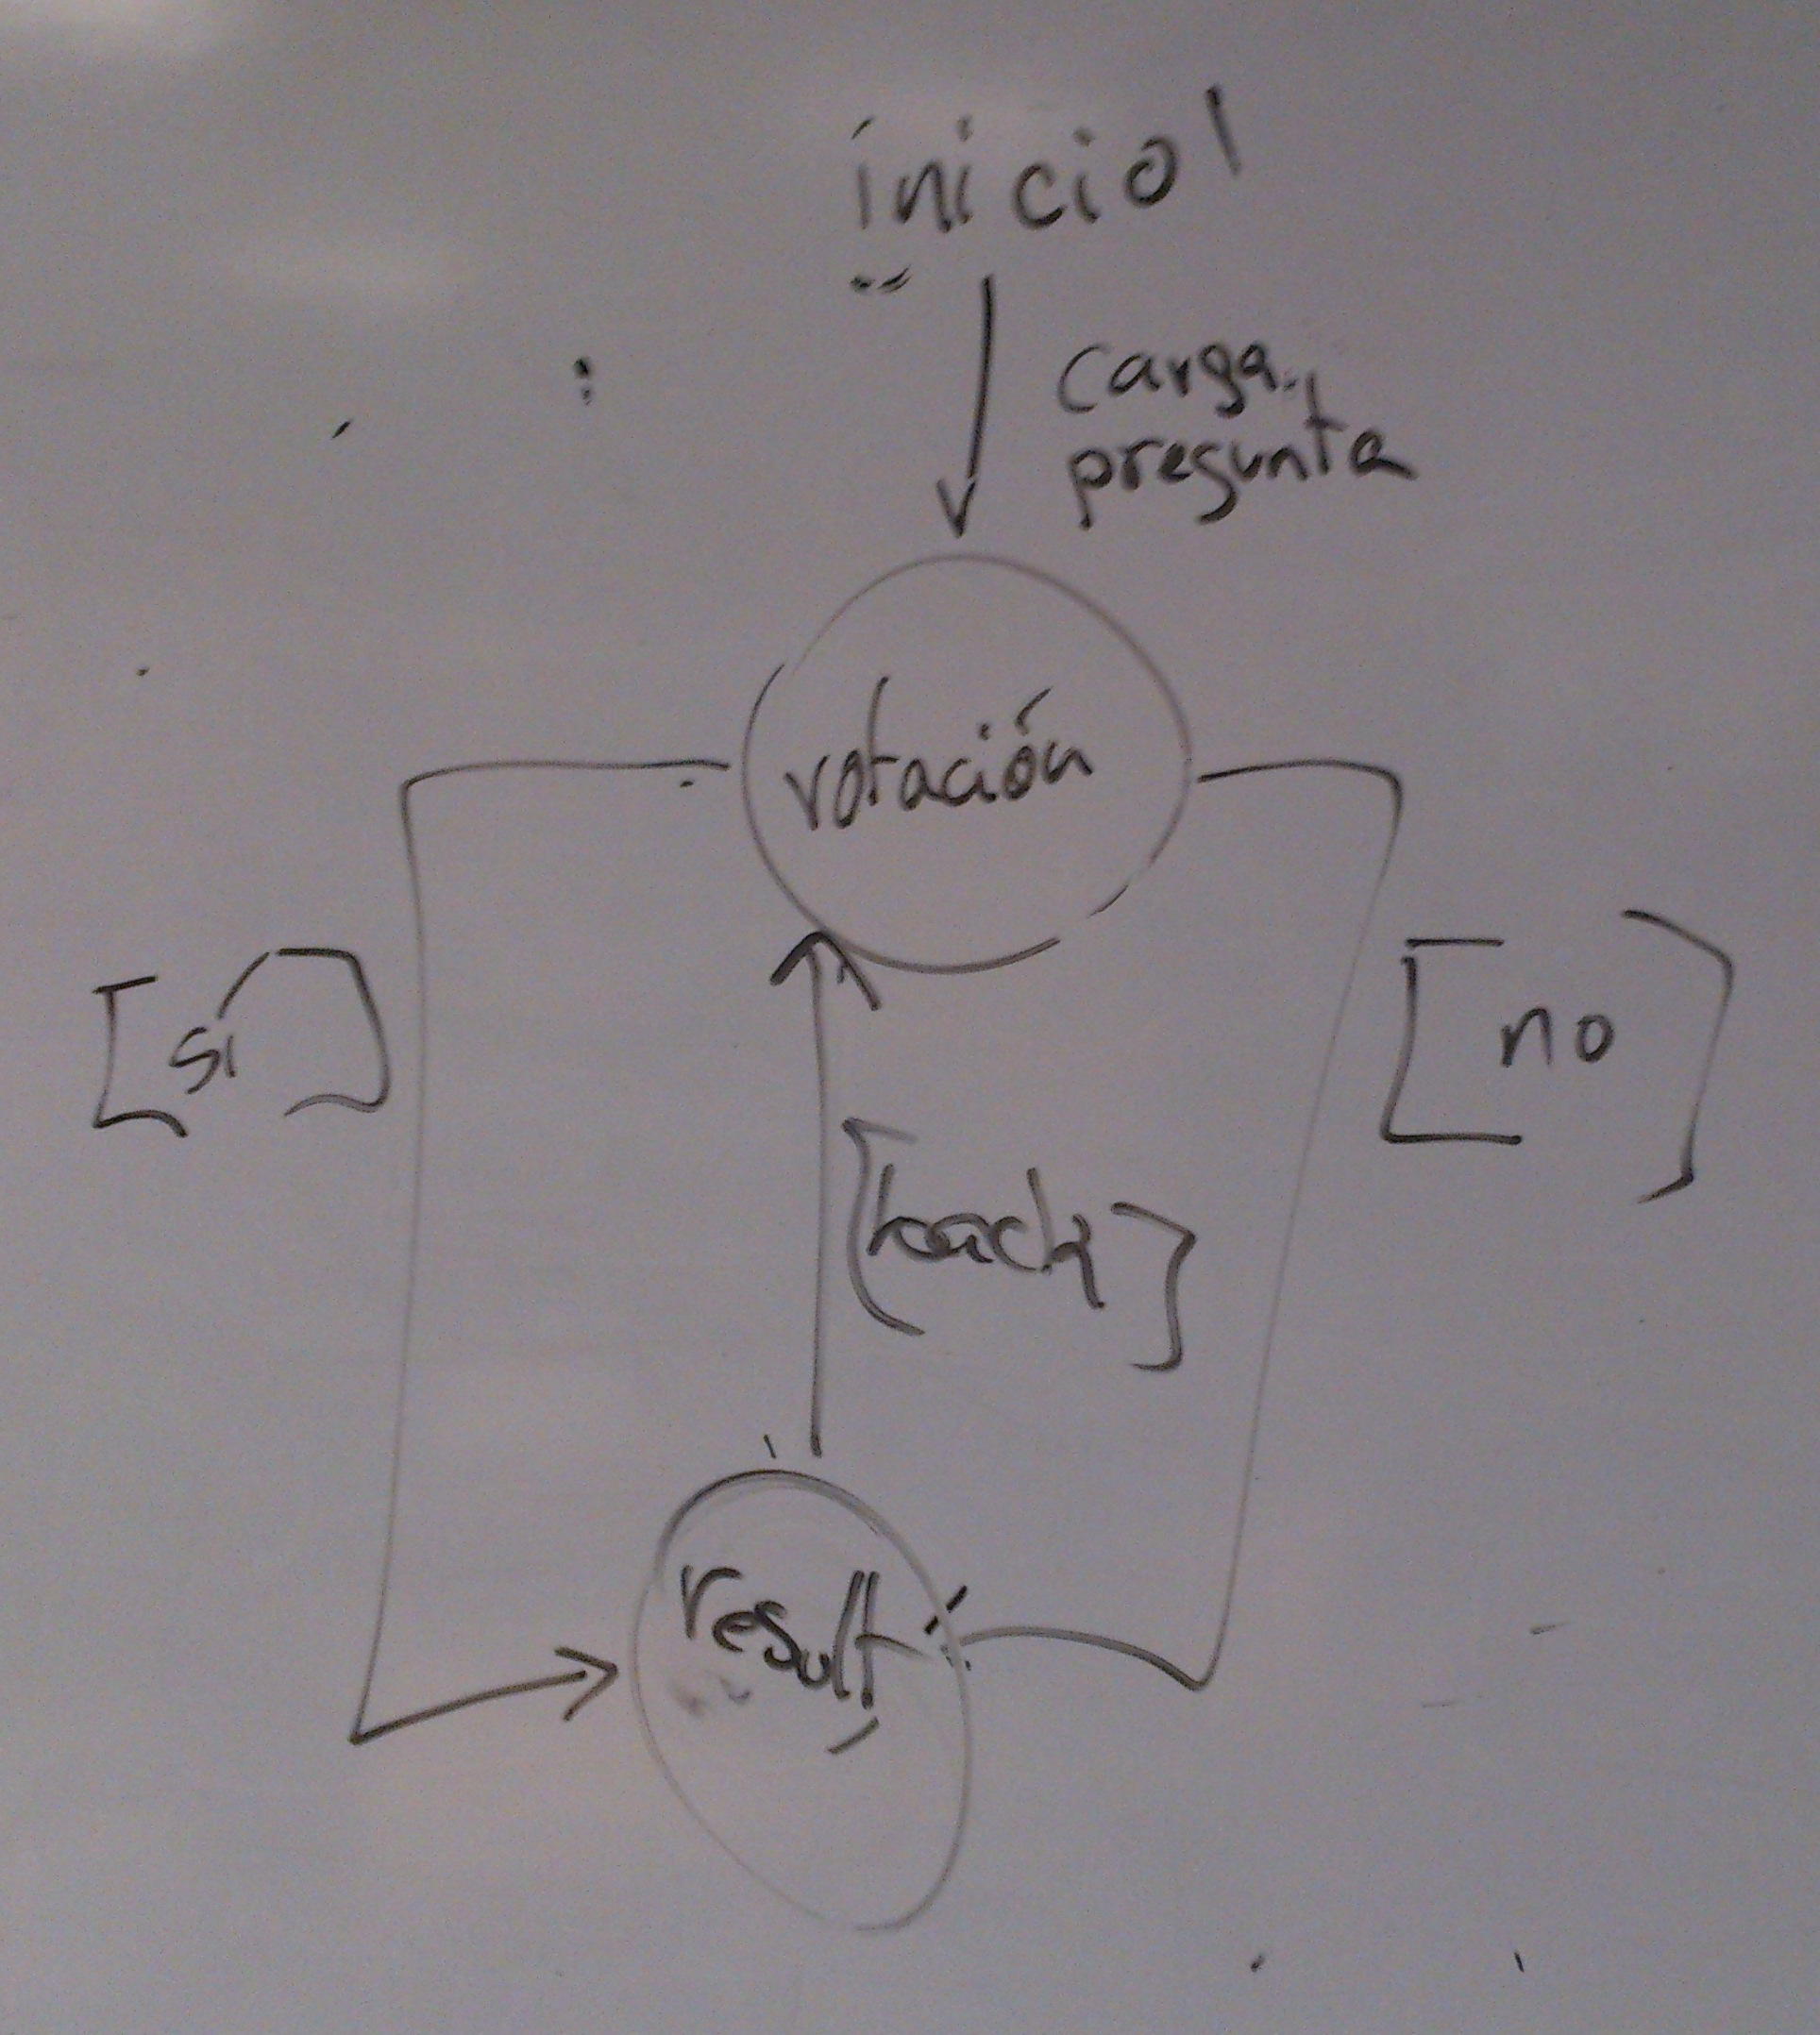 inicio!
carga
pregunta
votación
[si]
[no]
[back]
result